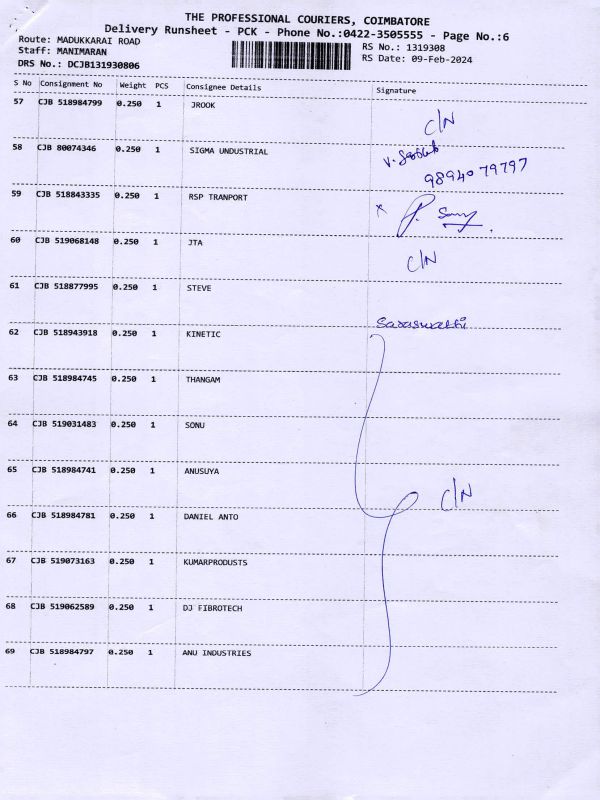 THE PROFESSIONAL COURIERS, COIMBATORE
Delivery Runsheet - PCK - Phone No.:0422-3505555 - Page No.:6
Route: MADUKKARAI ROAD
RS No.: 1319308
Staff: MANIMARAN
RS Date: 09-Feb-2024
DRS No.: DCJB131930806
S No Consignment No Weight PCS Consignee Details Signature
57 CJB 518984799 0.250 1 JROOK
C/N
58 CJB 80074346 0.250 1 SIGMA UNDUSTRIAL
98940 79797
59 CJB 518843335 0.250 1 RSP TRANPORT
60 CJB 519068148 0.250 1 JTA
C/N
61 CJB 518877995 0.250 1 STEVE
Saraswathi
62 CJB 518943918 0.250 1 KINETIC
63 CJB 518984745 0.250 1 THANGAM
64 CJB 519031483 0.250 1 SONU
65 CJB 518984741 0.250 1 ANUSUYA
C/N
66 CJB 518984781 0.250 1 DANIEL ANTO
67 CJB 519073163 0.250 1 KUMARPRODUSTS
68 CJB 519062589 0.250 1 DJ FIBROTECH
69 CJB 518984797 0.250 1 ANU INDUSTRIES